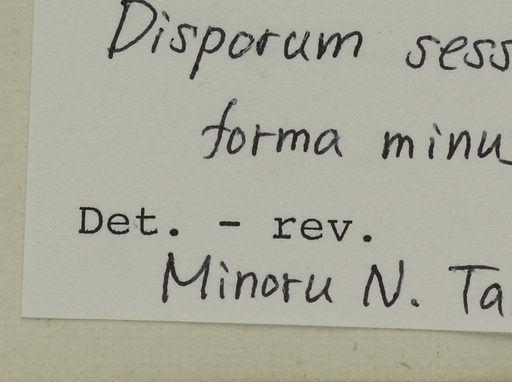 Disporum sess
forma minu
Det. - rev.
Minoru N. Ta